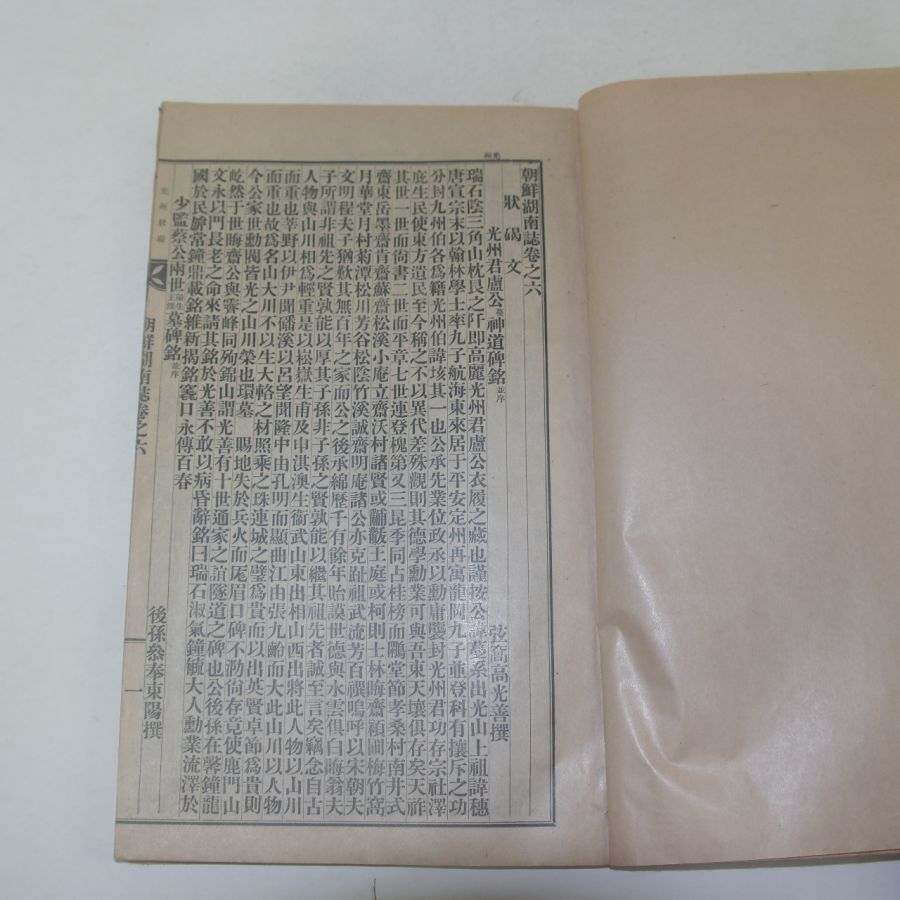 光州
朝鮮湖南誌卷之六
狀碣文
光州君盧公蔓神道碑銘並序 弦窩高光善撰
瑞石陰三角山枕艮之阡即高麗光州君盧公衣履之藏也謹按公諱蔓系出光山上祖諱穗
唐宣宗末以翰林學士率九子航海東來居于平安定州再寓龍岡九子並登科有攘斥之功
分封九州伯各爲籍光州伯諱垓其一也公承先業位政承以勳庸襲封光州君功存宗社澤
庇生民使東方遺民至今稱之不以異代差殊觀則其德學勳業可與吾東天壤俱存矣天祚
其世一世而尙書二世而平章七世連登槐第又三昆季同占桂榜而鵬堂節孝桑村南井式
齋東岳墨齋肯齋蘇齋松溪小庵立齋沃村諸賢或黼黻王庭或柯則士林晦齋稹圃梅竹窩
月華堂月村菊潭松川芳谷松陰竹溪誠齋明庵諸公亦克趾祖武流芳百禩嗚呼以宋朝夫
文明程夫子猶歎其無百年之家而公之後承綿歷千有餘年貽謨世德與水雲俱白晦翁夫
子所謂非祖先之賢孰能以厚其子孫非子孫之賢孰能以繼其祖先者誠至言矣竊念自古
人物與山川相爲輕重是以崧嶽生甫及申淇澳生衞武山東出相山西出將此人物以山川
而重也莘野以伊尹聞磻溪以呂望聞隆中由孔明而顯曲江由張九齡而大此山川以人物
而重也故爲名山大川不以生大輅之材照乘之珠連城之璧爲貴而以出英賢卓節爲貴則
今公家世勳閥皆光之山川榮也環墓 賜地失於兵火而厖眉口碑不泐尙存竟使鹿門山
屹然于世晦齋公與霽峰同殉錦山謂光善有十世通家之誼隧道之碑也公後孫在馨鐘龍
文永以門長老之命來請其銘於光善不敢以病昏辭銘曰瑞石淑氣鐘毓大人勳業流澤於
國於民辭常鐘鼎載銘維新揭銘窽口永傳百春
少監蔡公兩世墓碑銘並序 後孫叅奉東陽撰
朝鮮湖南誌卷之六
一